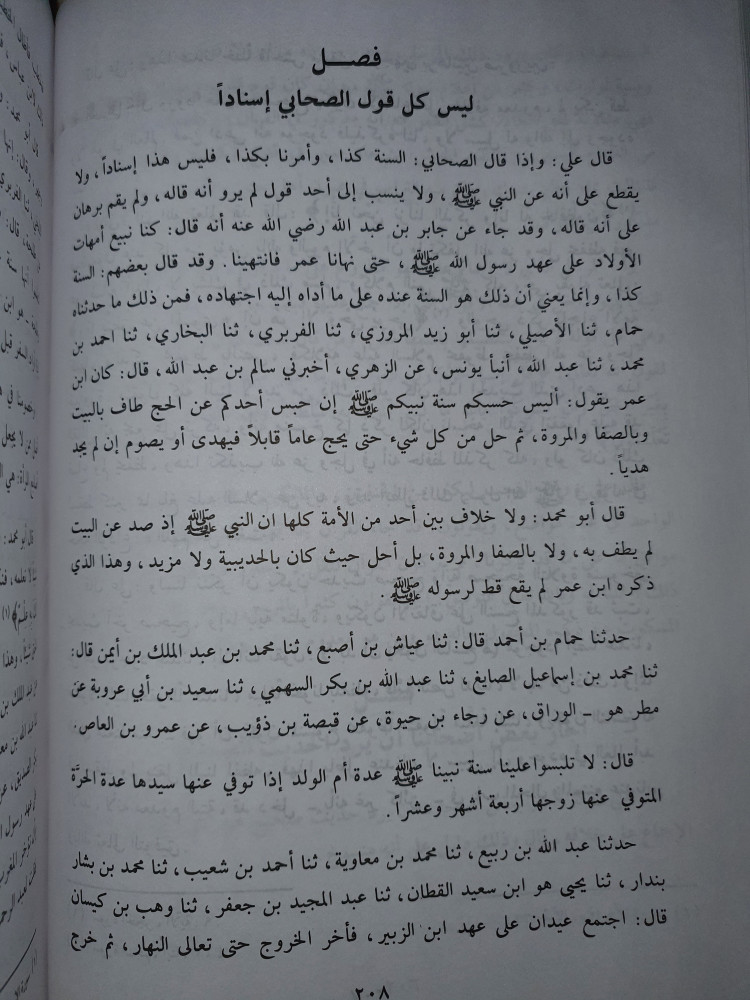 فصـــل
ليس كل قول الصحابي إسناداً
قال علي: وإذا قال الصحابي: السنة كذا، وأمرنا بكذا، فليس هذا إسناداً، ولا
يقطع على أنه عن النبي ﷺ، ولا ينسب إلى أحد قول لم يرو أنه قاله، ولم يقم برهان
على أنه قاله، وقد جاء عن جابر بن عبد الله رضي الله عنه أنه قال: كنا نبيع أمهات
الأولاد على عهد رسول الله ﷺ، حتى نهانا عمر فانتهينا. وقد قال بعضهم: السنة
كذا، وإنما يعني أن ذلك هو السنة عنده على ما أداه إليه اجتهاده، فمن ذلك ما حدثناه
حمام، ثنا الأصيلي، ثنا أبو زيد المروزي، ثنا الفربري، ثنا البخاري، ثنا احمد بن
محمد، ثنا عبد الله، أنبأ يونس، عن الزهري، أخبرني سالم بن عبد الله، قال: كان ابن
عمر يقول: أليس حسبكم سنة نبيكم ﷺ إن حبس أحدكم عن الحج طاف بالبيت
وبالصفا والمروة، ثم حل من كل شيء حتى يحج عاماً قابلاً فيهدى أو يصوم إن لم يجد
هدياً.
قال أبو محمد: ولا خلاف بين أحد من الأمة كلها ان النبي ﷺ إذ صد عن البيت
لم يطف به، ولا بالصفا والمروة، بل أحل حيث كان بالحديبية ولا مزيد، وهذا الذي
ذكره ابن عمر لم يقع قط لرسوله ﷺ.
حدثنا حمام بن أحمد قال: ثنا عياش بن أصبع، ثنا محمد بن عبد الملك بن أيمن قال:
ثنا محمد بن إسماعيل الصايغ، ثنا عبد الله بن بكر السهمي، ثنا سعيد بن أبي عروبة عن
مطر هو - الوراق، عن رجاء بن حيوة، عن قبصة بن ذؤيب، عن عمرو بن العاص.
قال: لا تلبسواعلينا سنة نبينا ﷺ عدة أم الولد إذا توفي عنها سيدها عدة الحرَّة
المتوفي عنها زوجها أربعة أشهر وعشراً.
حدثنا عبد الله بن ربيع، ثنا محمد بن معاوية، ثنا أحمد بن شعيب، ثنا محمد بن بشار
بندار، ثنا يحيى هو ابن سعيد القطان، ثنا عبد المجيد بن جعفر، ثنا وهب بن كيسان
قال: اجتمع عيدان على عهد ابن الزبير، فأخر الخروج حتى تعالى النهار، ثم خرج
٢٠٨